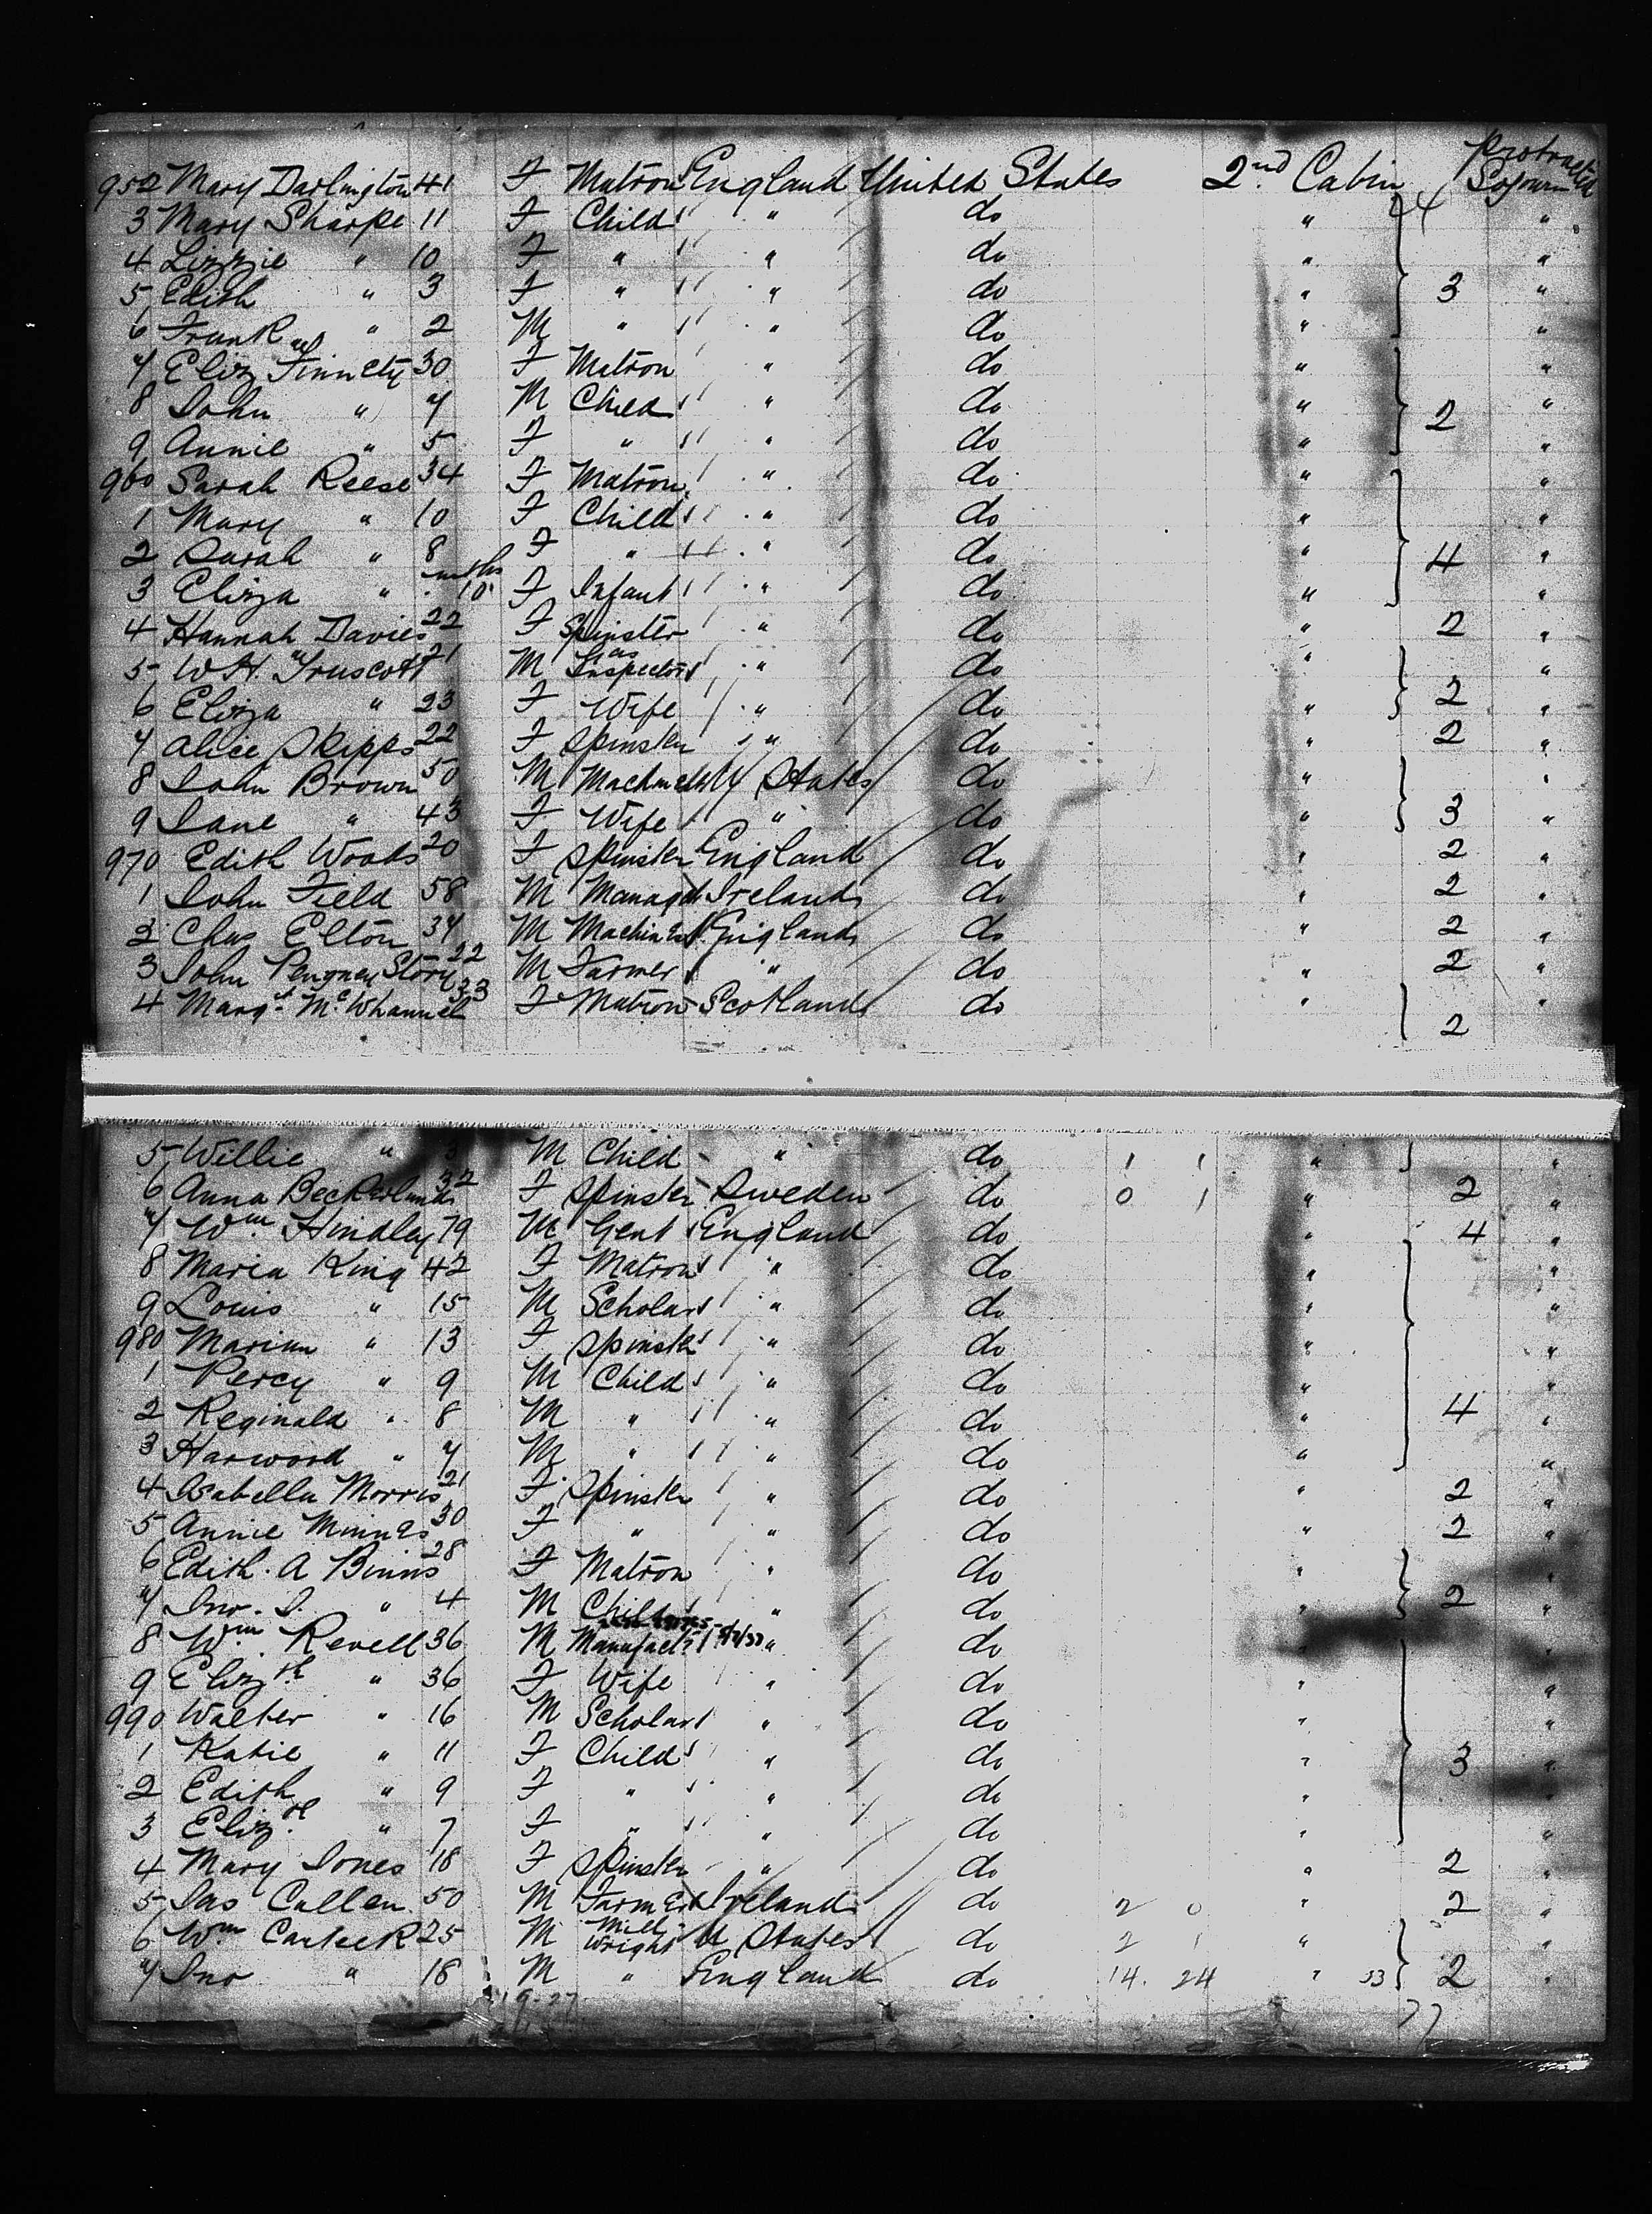 952 Mary Darlington 41 F Matron England United States 2nd Cabin 4 Protracted Sojourn
3 Mary Sharpe 11 F Child " do " "
4 Lizzie " 10 F " " do " "
5 Edith " 3 F " " do " 3 "
6 Frank " 2 M " " do " "
7 Elizth Finnety 30 F Matron " do " "
8 John " 7 M Child " do " 2 "
9 Annie " 5 F " " do " "
960 Sarah Reese 34 F Matron " do " "
1 Mary " 10 F Child " do " "
2 Sarah " 8 F " " do " 4 "
3 Eliza " mths 10 F Infant " do " "
4 Hannah Davies 22 F Spinster " do " 2 "
5 W.H. Truscott 21 M Gas Inspector " do " "
6 Eliza " 23 F Wife " do " 2 "
7 Alice Skipps 22 F Spinster " do " 2 "
8 John Brown 50 M U States do " "
9 Jane " 43 F Wife " do " 3 "
970 Edith Woods 20 F Spinster England do " 2 "
1 John Field 58 M Manager Ireland do " 2 "
2 Chas Elton 34 M England do " 2 "
3 John Story 22 M Farmer " do " 2 "
4 Margt McWhannel 33 F Matron Scotland do " 2 "
5 Willie " 3 M Child " do 1 1 " "
6 Anna 32 F Spinster Sweden do 0 1 " 2 "
7 Wm Hindley 79 M Gent England do " 4 "
8 Maria King 42 F Matron " do " "
9 Louis " 15 M Scholar " do " "
980 Marian " 13 F Spinster " do " "
1 Percy " 9 M Child " do " "
2 Reginald " 8 M " " do " 4 "
3 Harwood " 7 M " " do " "
4 Isabella Morris 21 F Spinster " do " 2 "
5 Annie Minnes 30 F " " do " 2 "
6 Edith. A Binns 28 F Matron " do " "
7 Jno. J. " 4 M Child " do " 2 "
8 Wm Revell 36 M Manufactr " do " "
9 Elizth " 36 F Wife " do " "
990 Walter " 16 M Scholar " do " "
1 Katie " 11 F Child " do " 3 "
2 Edith " 9 F " " do " "
3 Elizth " 7 F " " do " "
4 Mary Jones 18 F Spinster " do " 2 "
5 Jas Cullen 50 M Farmer Ireland do 2 0 " 2 "
6 Wm Carbeek 25 M Mill Wright U States do 2 1 " "
7 Jno " 18 M " England do 14. 24 " 53 2 "
77